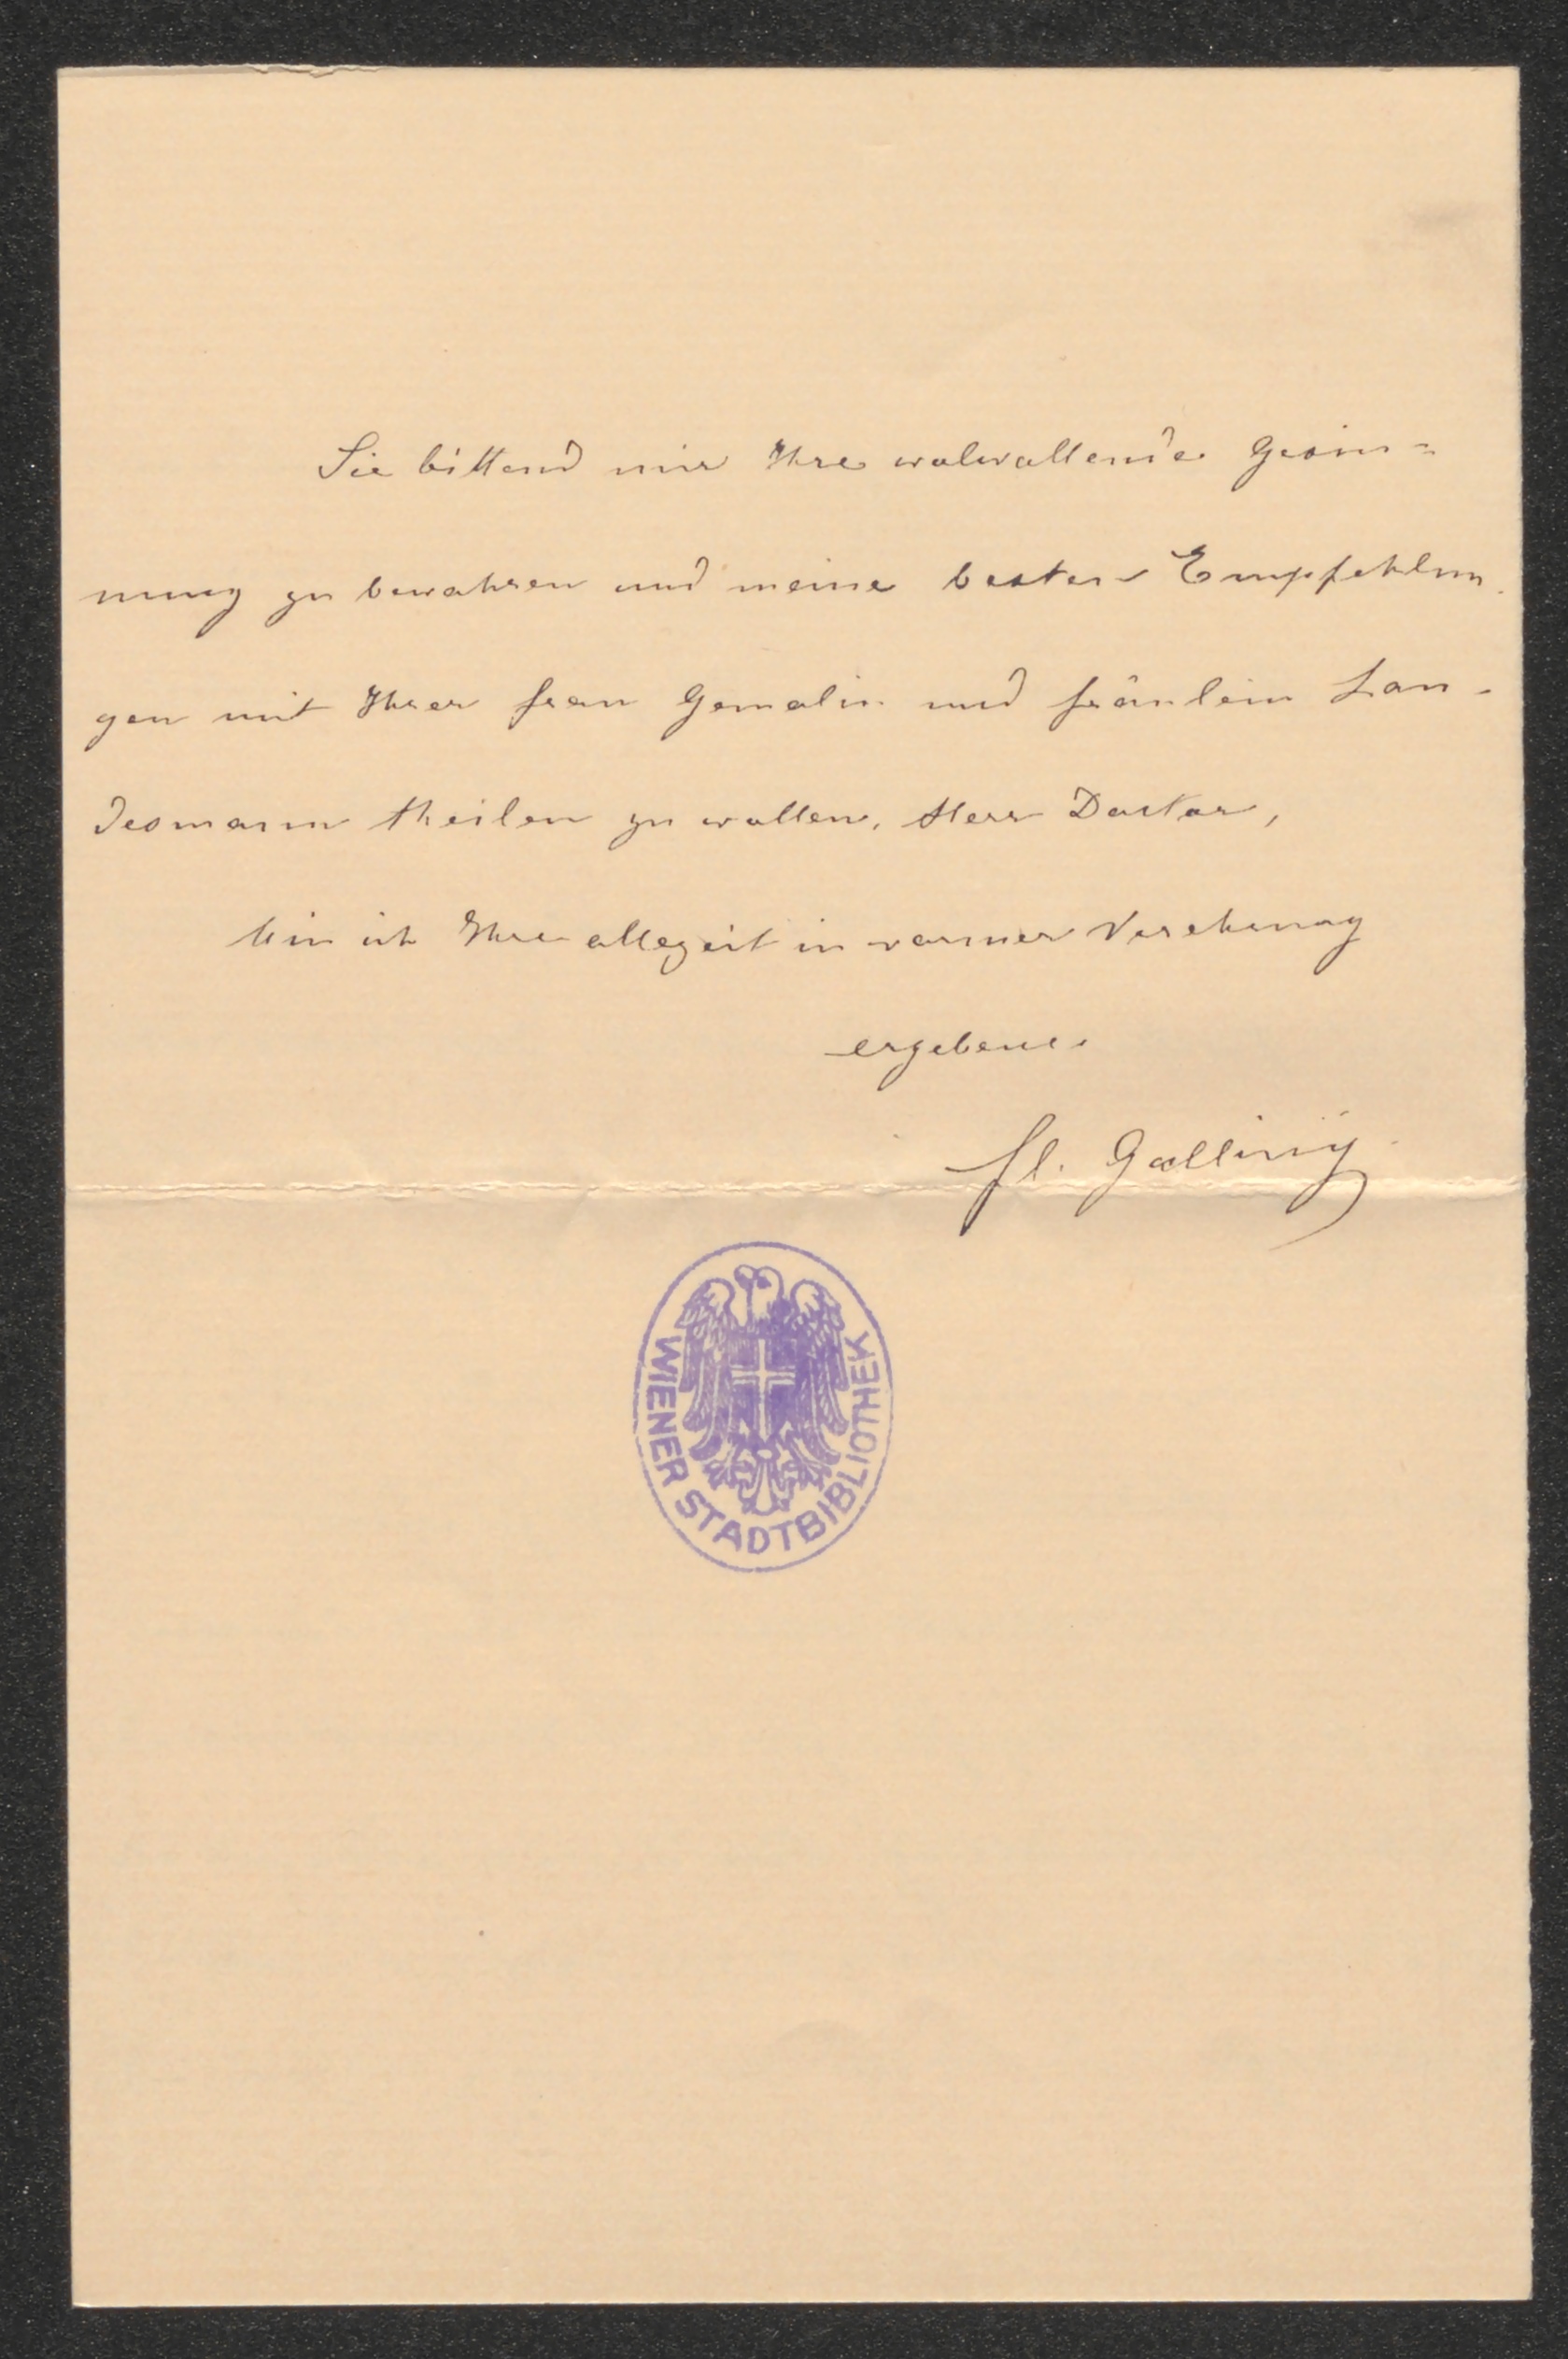 Sie bittend mir Ihre wolwollende Gesin=
nung zu bewahren und meine besten Empfehlun
gen mit Ihrer Frau Gemalin und Fräulein Lan-
desmann theilen zu wollen, Herr Doctor,
bin ich Ihre allezeit in warmer Verehrung
ergebene
Fl. Galliny
WIENER STADTBIBLIOTHEK